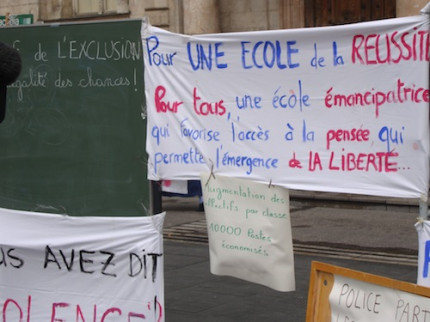 de L'EXCLUSION
égalité des chances!
Pour UNE ECOLE de la REUSSITE
Pour tous, une école émancipatrice
qui favorise l'accès à la pensée, qui
permette l'émergence de LA LIBERTÉ...
Augmentation des
effectifs par classe
10000 Postes
économisés
AVEZ DIT
POLICE